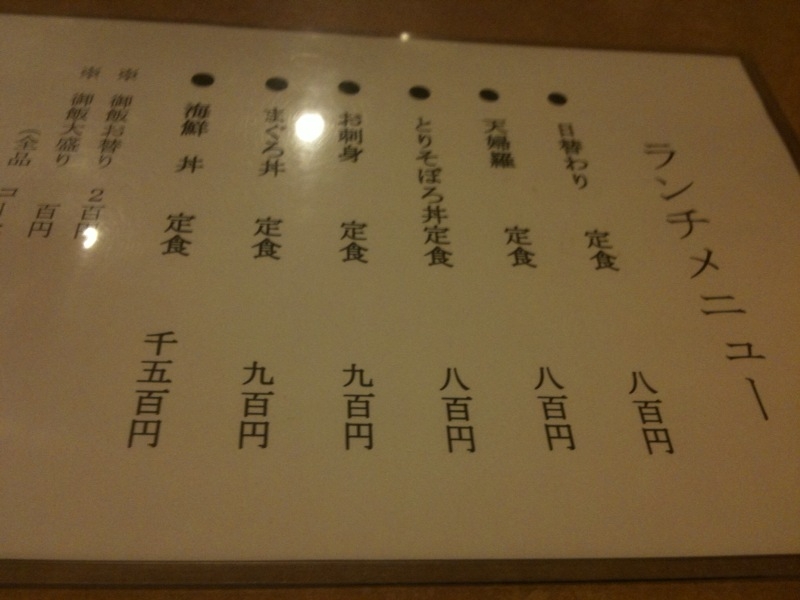 ランチメニュー
●日替わり 定食 八百円
●天婦羅 定食 八百円
●とりそぼろ丼定食 八百円
●お刺身 定食 九百円
●まぐろ丼 定食 九百円
●海鮮 丼 定食 千五百円
※ 御飯お替り 2百円
※ 御飯大盛り 百円
（全品